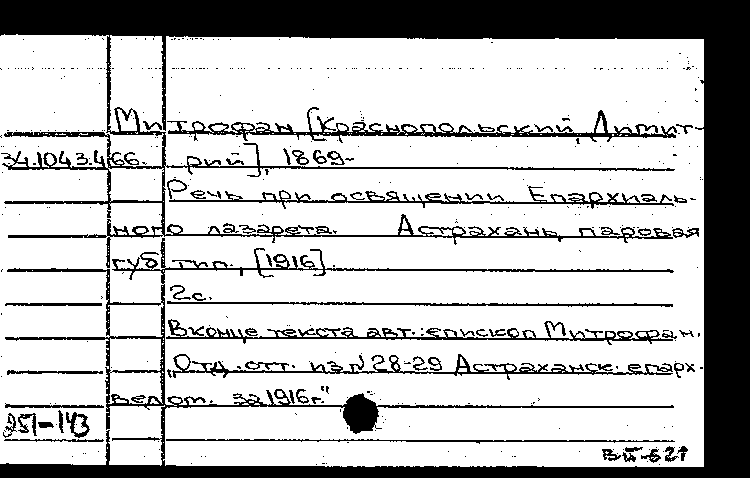 Митрофан, [Краснопольский, Димит-
34.1043.466. рий], 1869-
Речь при освящении Епархиаль-
ного лазарета. Астрахань, паровая
губ. тип., [1916].
2с.
В конце текста авт.: епископ Митрофан.
„Отд. отт. из № 28-29 Астраханск. епарх.
ведом. за 1916г."
251-143